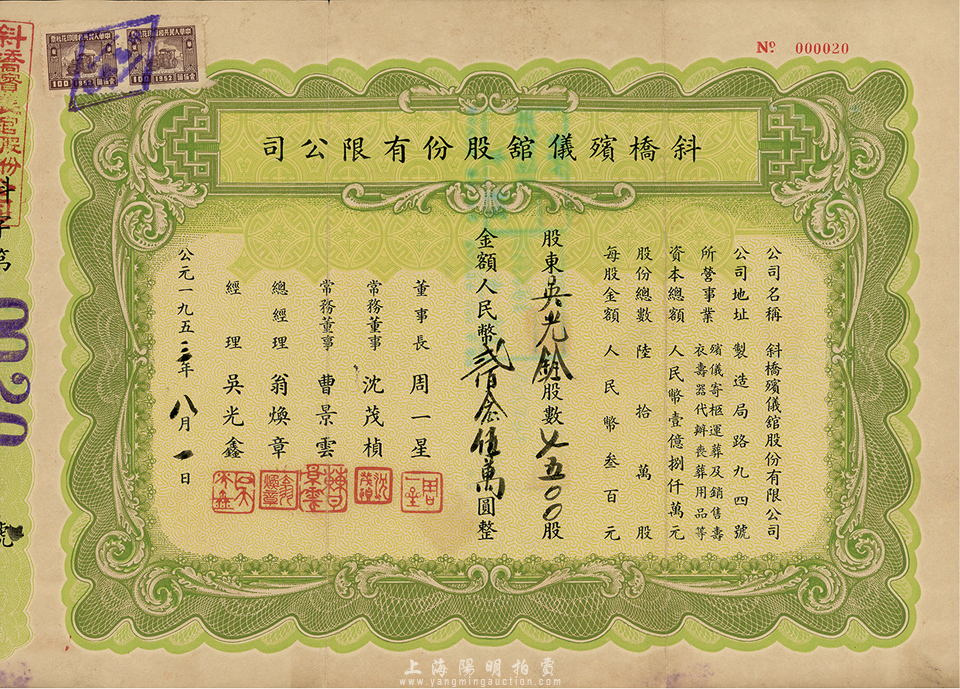 Nº 000020
中華人民共和國印花稅票
100 1952
中華人民共和國印花稅票
100 1952
斜橋殯儀舘股份有限公司
公司名稱 斜橋殯儀舘股份有限公司
公司地址 製造局路九四號
所營事業 殯儀寄柩運葬及銷售壽
衣壽器代辦喪葬用品等
資本總額 人民幣壹億捌仟萬元
股份總數 陸拾萬股
每股金額 人民幣叁百元
股東吳光銓股數七五〇〇股
金額人民幣貳佰念伍萬圓整
董事長 周一星
常務董事 沈茂楨
常務董事 曹景雲
總經理 翁煥章
經理 吳光鑫
公元一九五三年八月一日
斜橋殯儀舘股份
斜字第 0020 號
上海陽明拍賣
www.yangmingauction.com